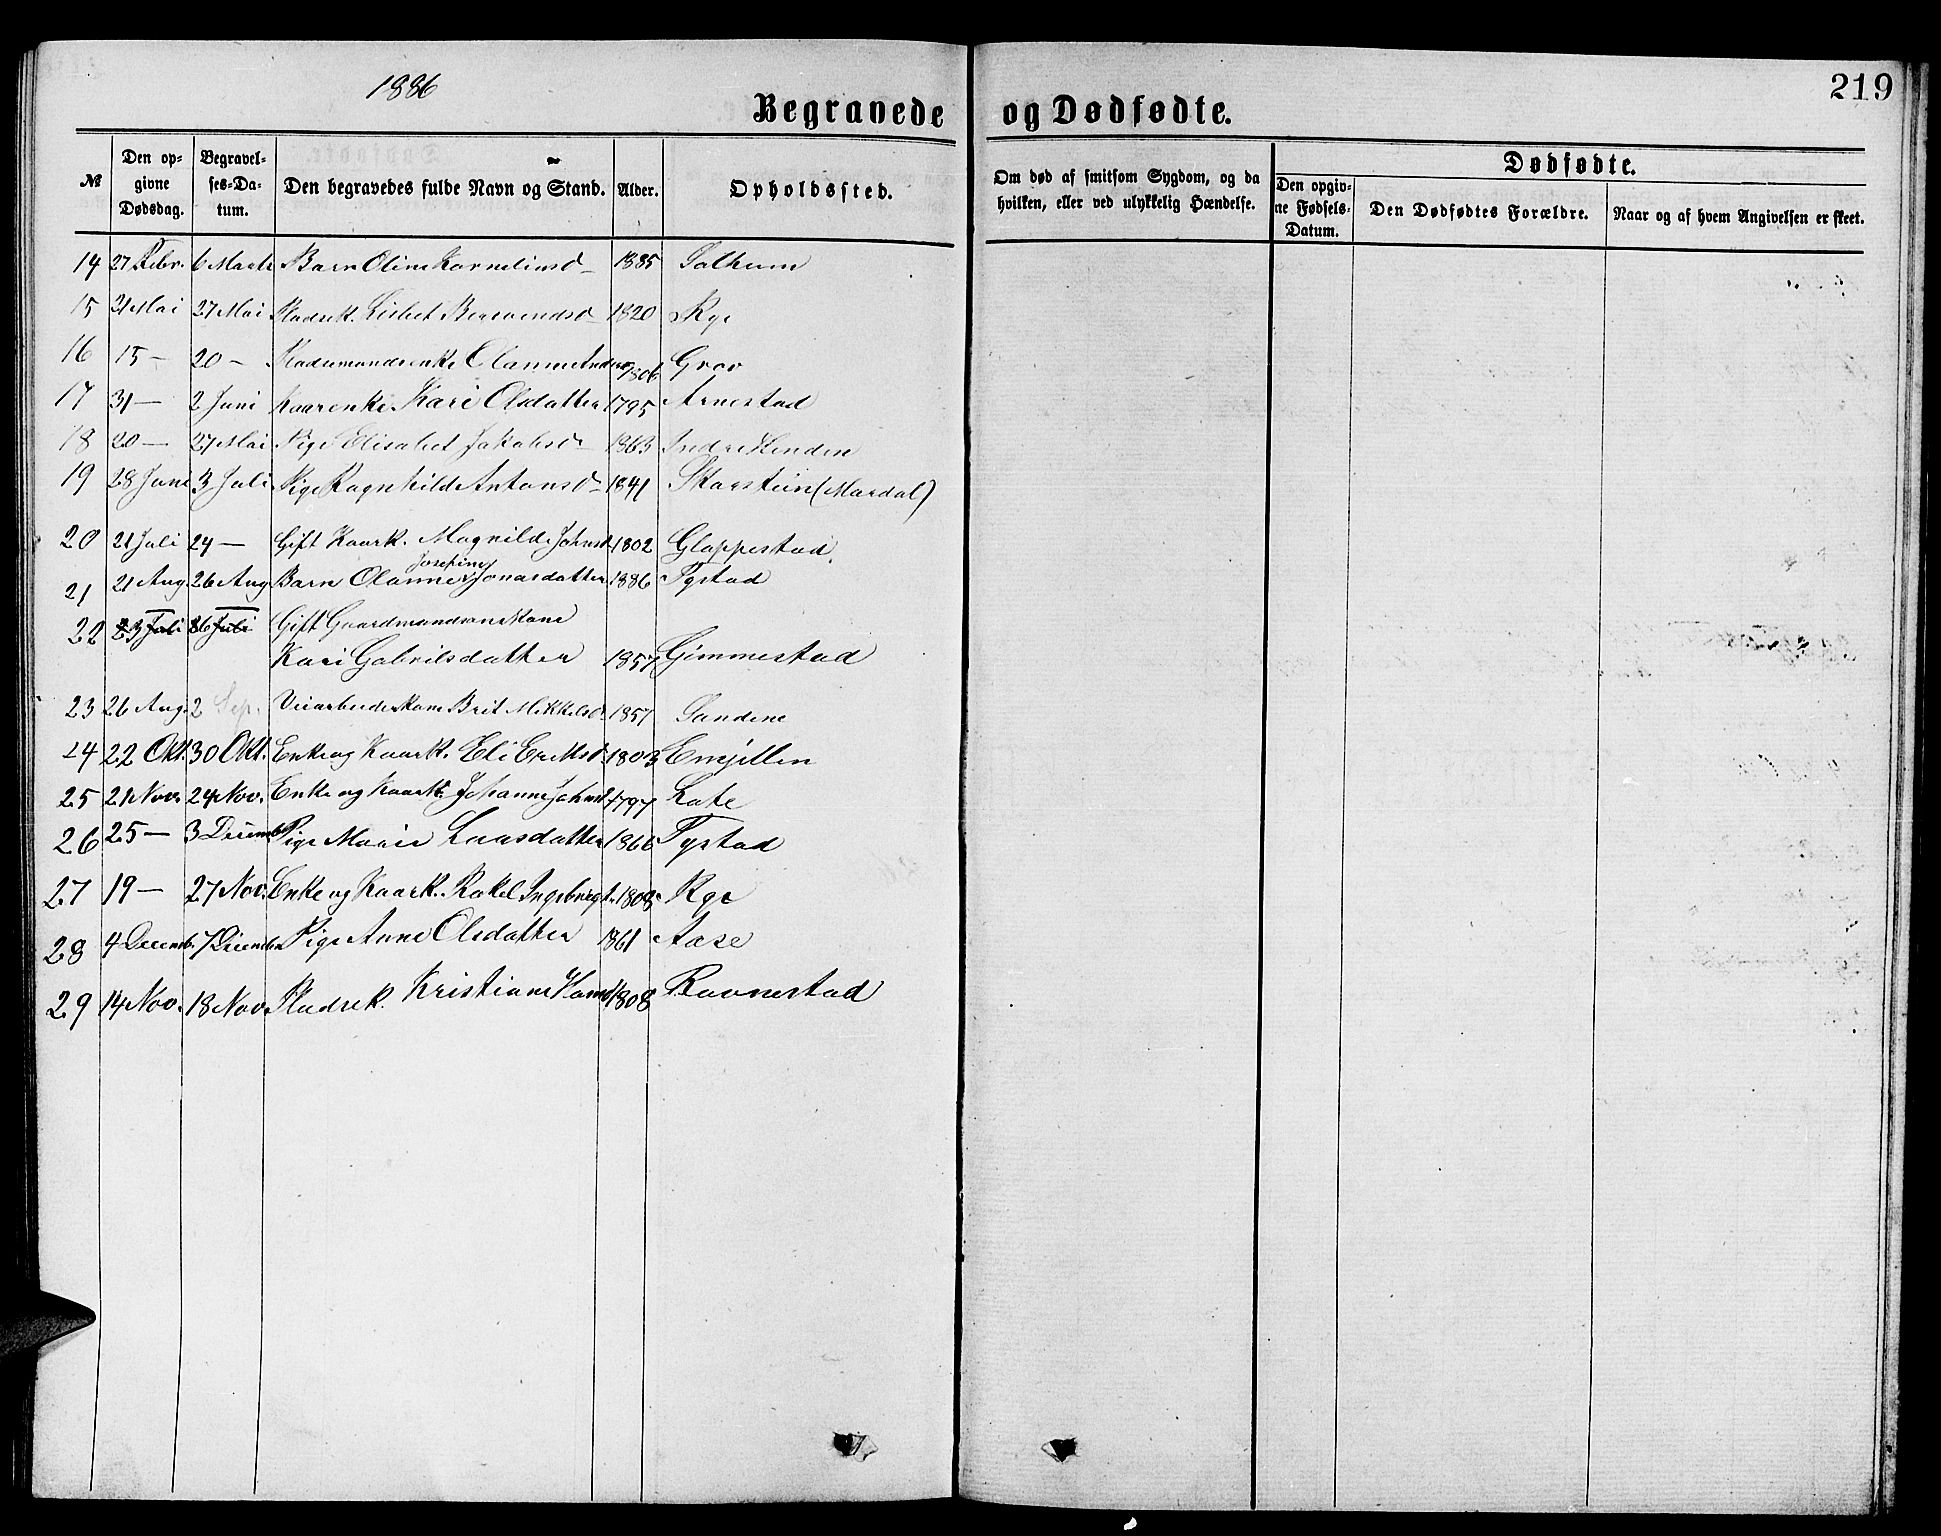 1886
219
Begravede og Dødfødte.
№ Den op- givne Dødsdag. Begravel- ses-Da- tum. Den begravedes fulde Navn og Stand. Alder. Opholdssted. Om død af smitsom Sygdom, og da hvilken, eller ved ulykkelig Hændelse. Dødfødte. Den opgiv- ne Fødsels- Datum. Den Dødfødtes Forældre. Naar og af hvem Angivelsen er skeet.
14 27 Febr. 6 Marts Barn Oline Kornelinsd 1885 Solheim
15 21 Mai 27 Mai Pladsk. Lisbet 1820 Rye
16 15 — 20 — Pladsmandsenke Olianne 1806 Grov
17 31 — 2 Juni Kaarenke Kari Olsdatter 1795 Arnestad
18 20 — 27 Mai Pige Elisabet Jakobsd 1863 Indre Henden
19 28 Juni 3 Juli Pige Ragnhilde Antonsd 1841 Skarstein (Mardal)
20 21 Juli 24 — Gift Kaark. Magnilde Johnsd. 1802 Gloppestad.
Josefine
21 21 Aug 26 Aug Barn Olianne Jonasdatter 1886 Tystad
22 23 Juli 26 Juli Gift Gaardmandsøns Kone
Kari Gabrilsdatter 1857 Gimmestad
23 26 Aug. 2 Sep. Veiarbeiderskone Brit Mikkelsd. 1857 Sandene
24 22 Okt. 30 Okt. Enke og Kaark. Eli Eriksd. 1803 Emjellen
25 21 Nov. 24 Nov. Enke og Kaark. Johanne Johnsd. 1797 Lote
26 25 — 3 Decemb. Pige Marie Laasdatter 1866 Tystad
27 19 — 27 Nov. Enke og Kaark. Rakel Ingebregt. 1808 Rye
28 4 Decemb. 7 Decemb. Pige Anne Olsdatter 1861 Aase
29 14 Nov. 18 Nov. Pladsek. Kristiane Hansd. 1808 Ravnestad